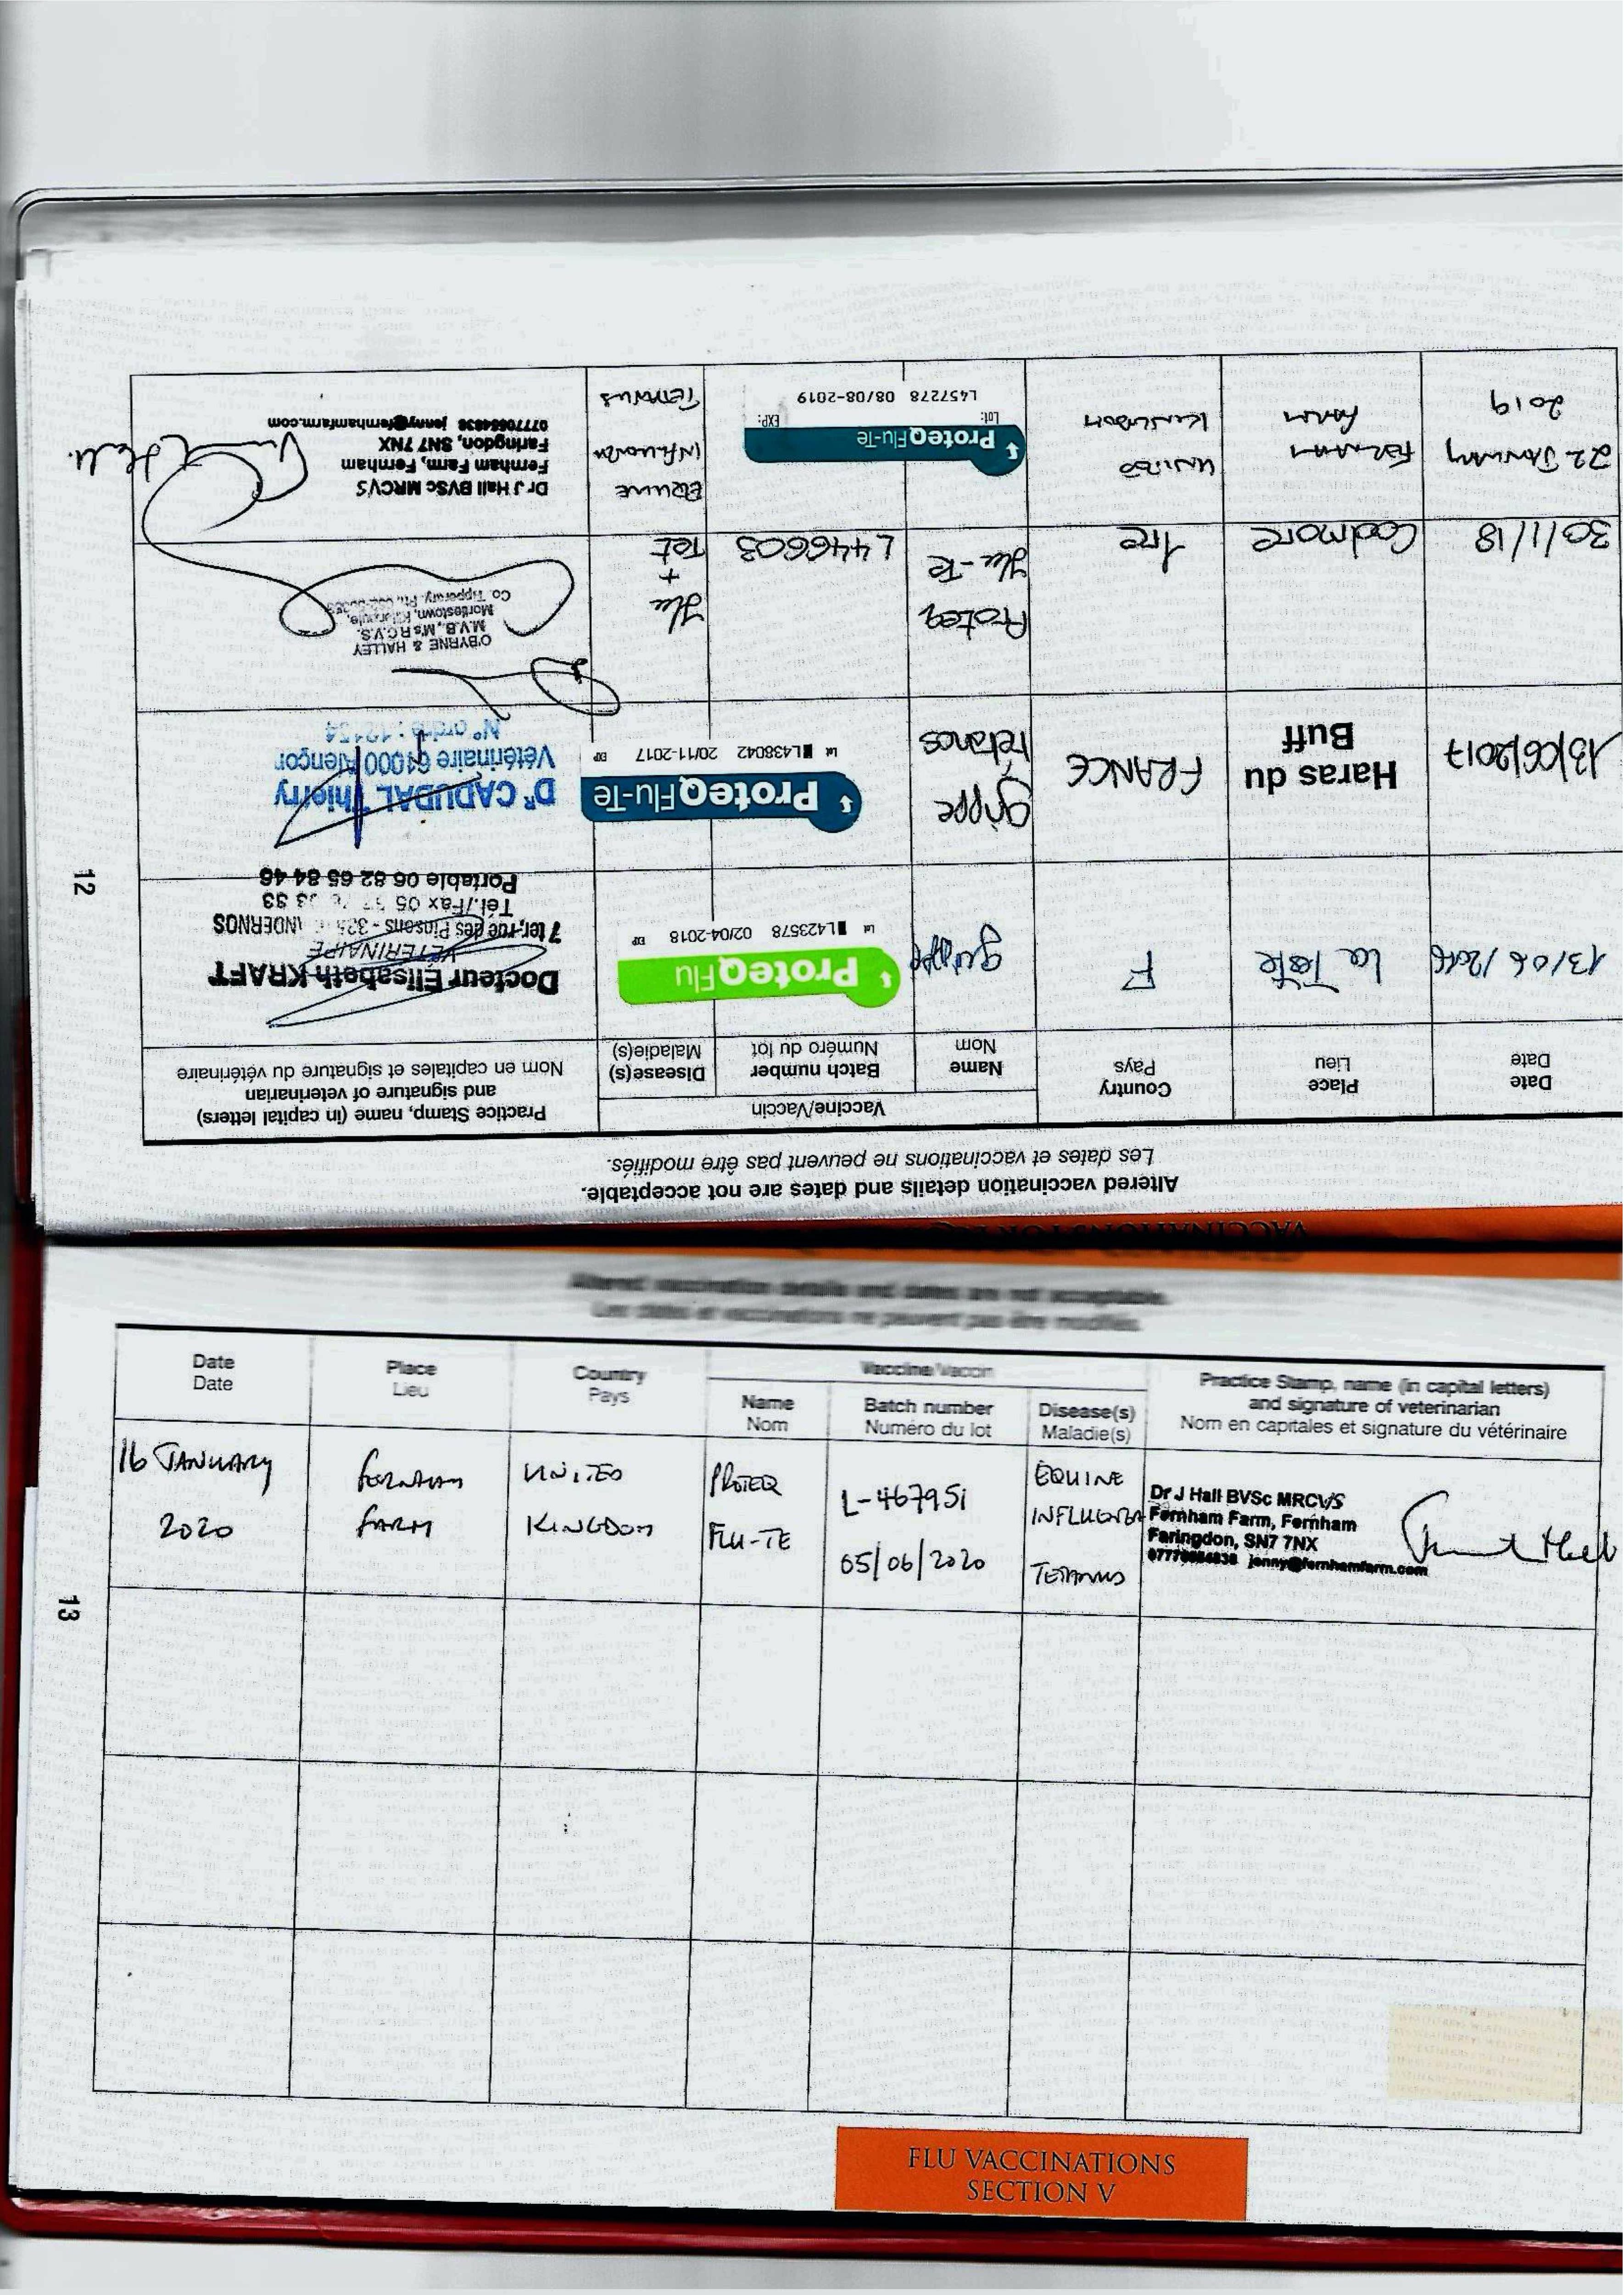 VACCINATIONS FOR
Altered vaccination details and dates are not acceptable.
Les dates et vaccinations ne peuvent pas être modifiés.
Date
Date
Place
Lieu
Country
Pays
Vaccine/Vaccin
Name
Nom
Batch number
Numéro du lot
Disease(s)
Maladie(s)
Practice Stamp, name (in capital letters)
and signature of veterinarian
Nom en capitales et signature du vétérinaire
13/06/2016
La Teste
F
grippe
ProteqFlu
Lot L423578 02/04-2018 EXP
Docteur Élisabeth KRAFT
VÉTÉRINAIRE
7 ter, rue des Pinsons - ANDERNOS
Tél./Fax 05
Portable 06 82 65 84 46
13/06/2017
Haras du
Buff
FRANCE
grippe
tétanos
ProteqFlu-Te
Lot L438042 20/11-2017 EXP
Dr CADUDAL Thierry
Vétérinaire 61000 Alençon
N° ordre :
30/1/18
Coolmore
Ire
Proteq
Flu-Te
L446603
Flu
+
Tet
O'BYRNE & HALLEY
M.V.B., M's R.C.V.S.
Mortlestown, Kilsheelan,
Co. Tipperary.
22 JANUARY
2019
FERNHAM
FARM
UNITED
KINGDOM
ProteqFlu-Te
Lot: EXP:
L457278 08/08-2019
EQUINE
INFLUENZA
TETANUS
Dr J Hall BVSc MRCVS
Fernham Farm, Fernham
Faringdon, SN7 7NX
jenny@fernhamfarm.com
12
Altered vaccination details and dates are not acceptable.
Les dates et vaccinations ne peuvent pas être modifiés.
Date
Date
Place
Lieu
Country
Pays
Vaccine/Vaccin
Name
Nom
Batch number
Numéro du lot
Disease(s)
Maladie(s)
Practice Stamp, name (in capital letters)
and signature of veterinarian
Nom en capitales et signature du vétérinaire
16 JANUARY
2020
FERNHAM
FARM
UNITED
KINGDOM
PROTEQ
FLU-TE
L-467951
05/06/2020
EQUINE
INFLUENZA
TETANUS
Dr J Hall BVSc MRCVS
Fernham Farm, Fernham
Faringdon, SN7 7NX
jenny@fernhamfarm.com
13
FLU VACCINATIONS
SECTION V